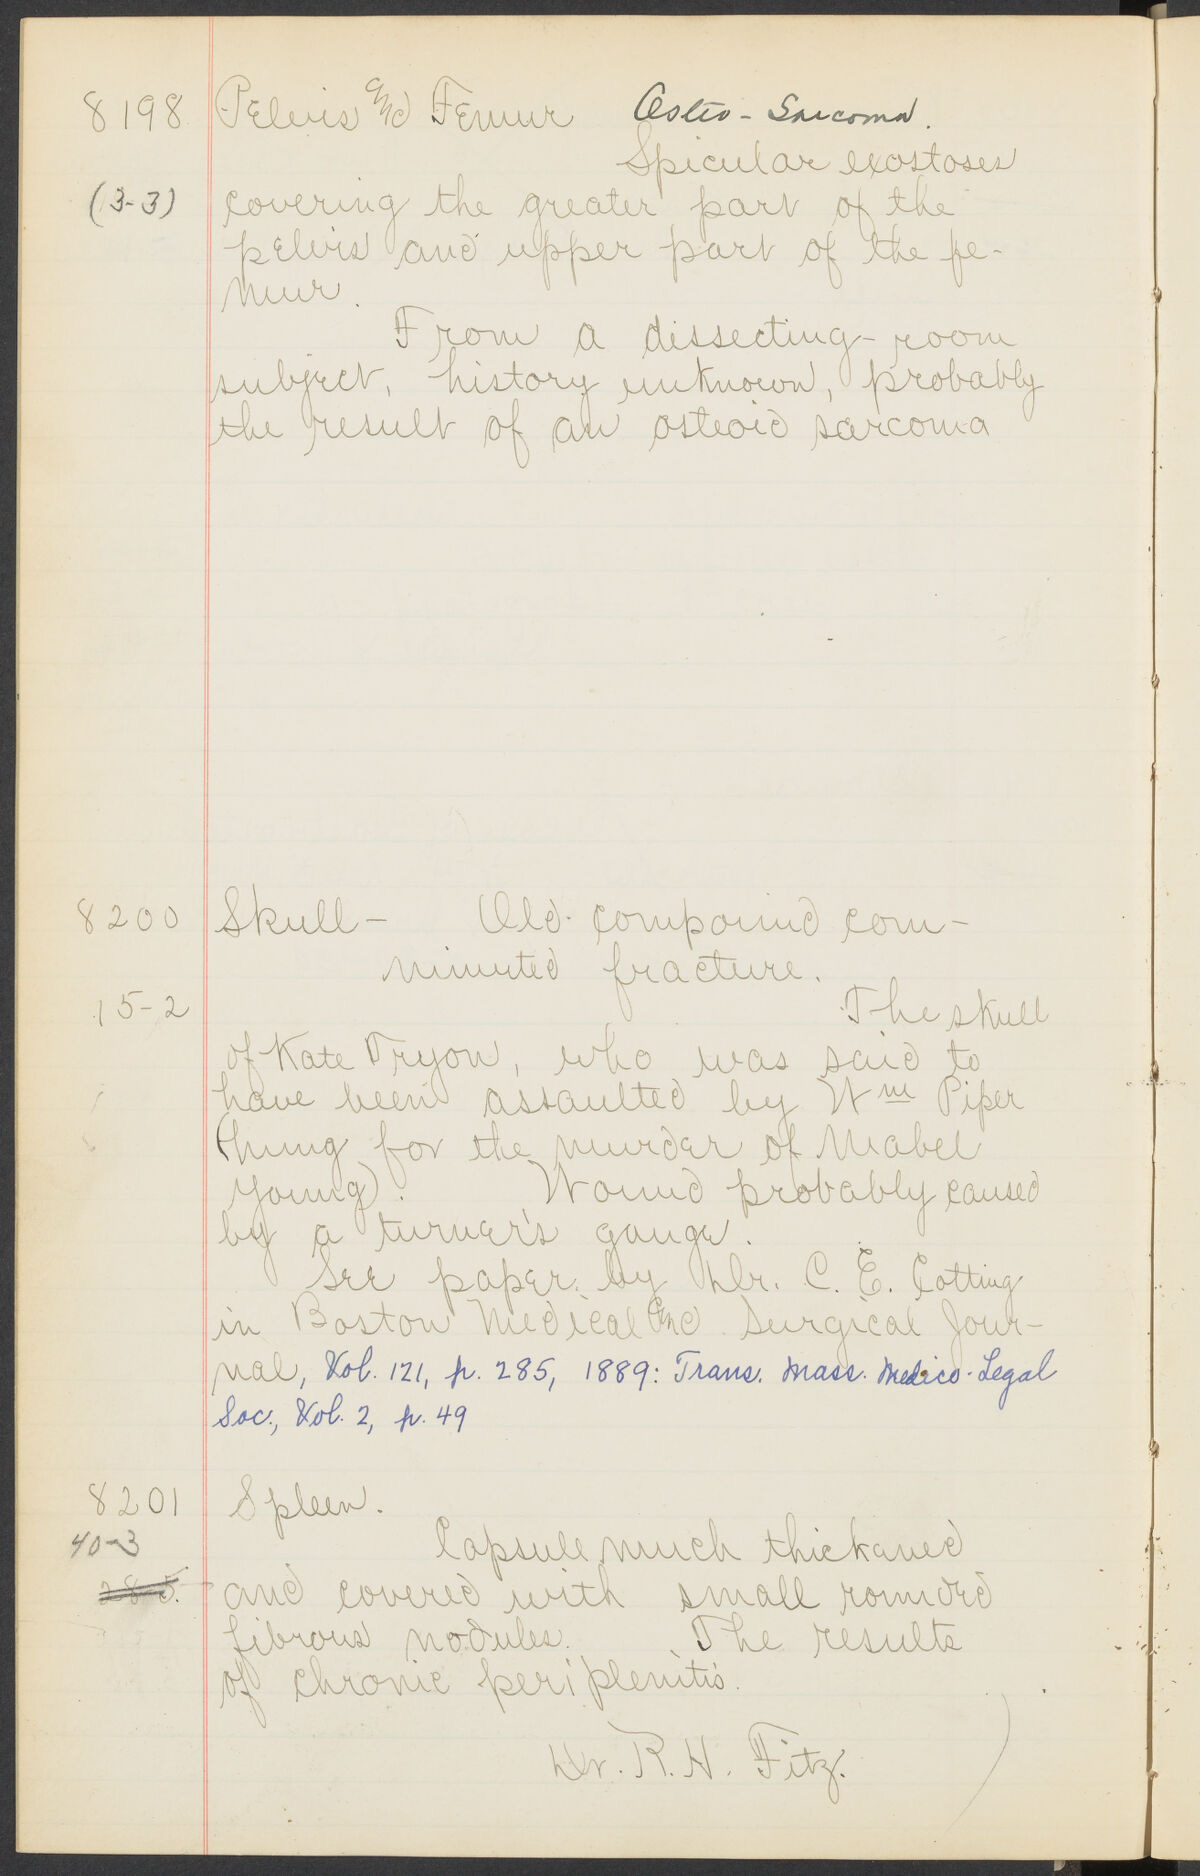 8198 Pelvis and Femur Osteo-Sarcoma.
Spicular exostoses
(3-3) covering the greater part of the
pelvis and upper part of the fe-
mur.
From a dissecting-room
subject, history unknown, probably
the result of an osteoid sarcoma
8200 Skull- Old compound com-
minuted fracture.
15-2 The skull
of Kate Tryon, who was said to
have been assaulted by Wm Piper
(hung for the murder of Mabel
Young). Wound probably caused
by a turner's gauge.
See paper by Dr. C. E. Cotting
in Boston Medical and Surgical Jour-
nal, Vol. 121, p. 285, 1889: Trans. Mass. Medico-Legal
Soc., Vol. 2, p. 49
8201 Spleen.
40-3 Capsule much thickened
and covered with small rounded
fibrous nodules. The results
of chronic periplenitis.
Dr. R. H. Fitz.